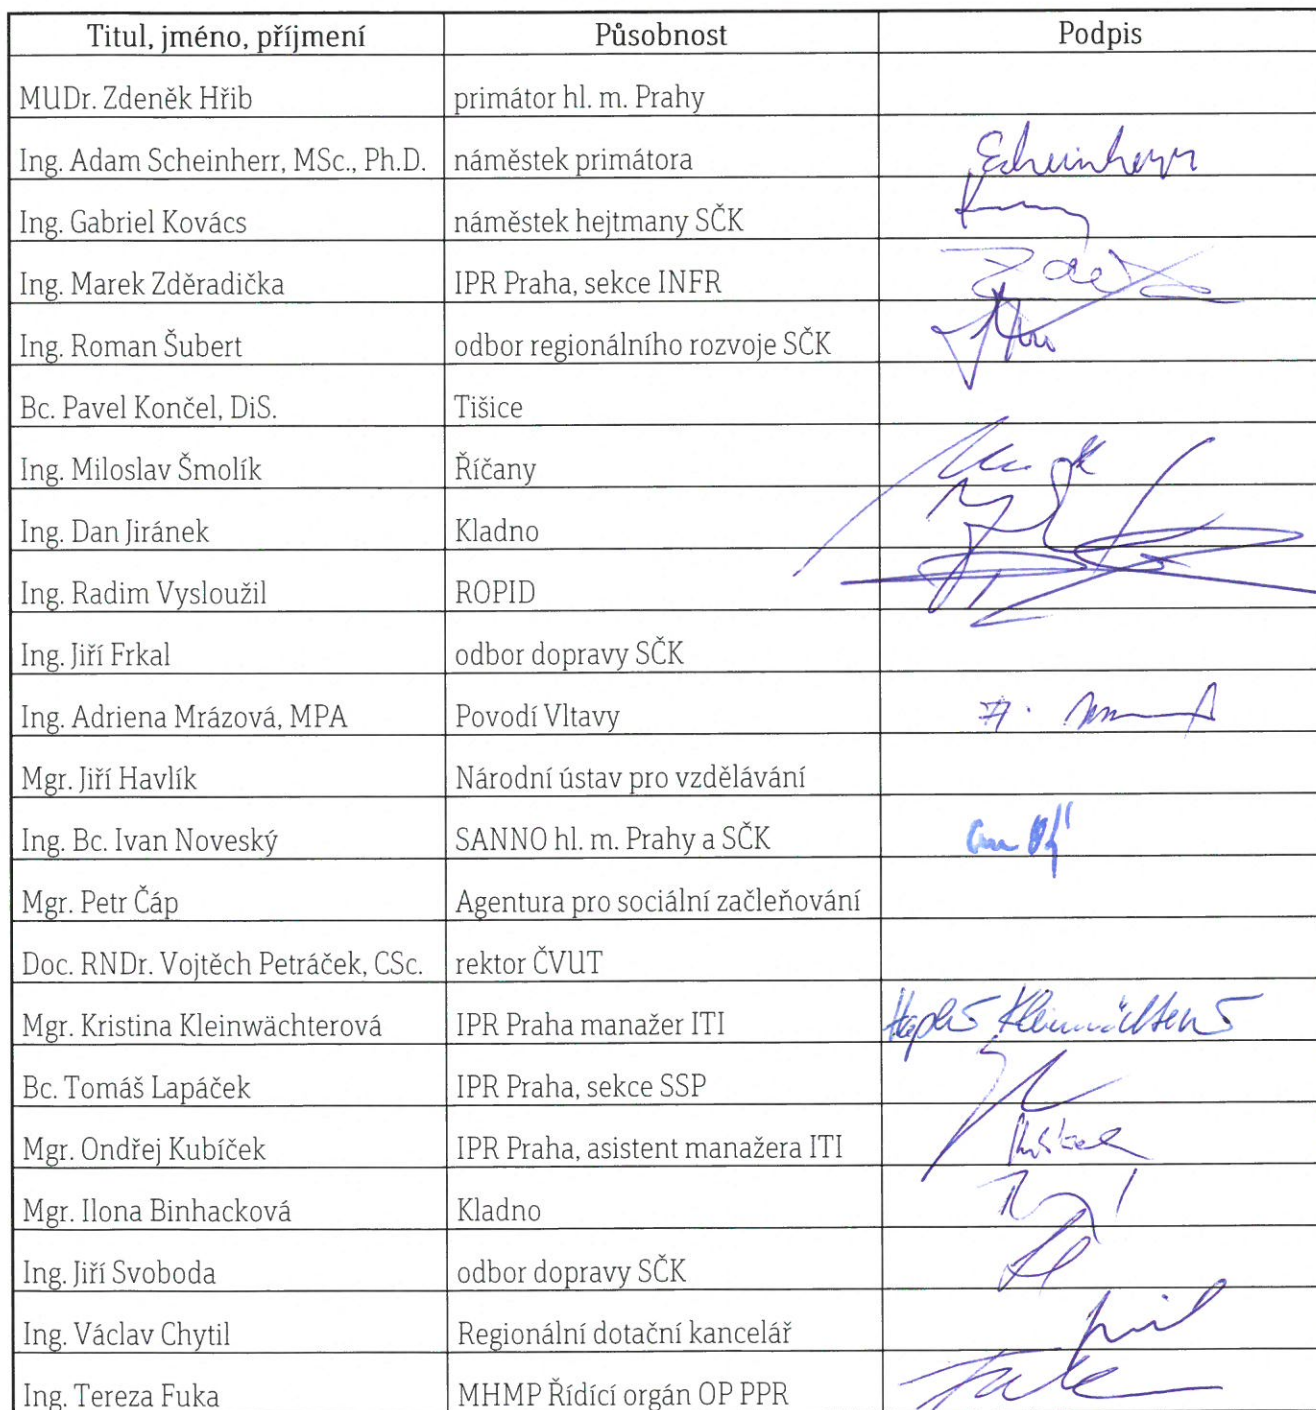 Titul, jméno, příjmení Působnost Podpis
MUDr. Zdeněk Hřib primátor hl. m. Prahy
Ing. Adam Scheinherr, MSc., Ph.D. náměstek primátora Scheinherr
Ing. Gabriel Kovács náměstek hejtmany SČK
Ing. Marek Zděradička IPR Praha, sekce INFR
Ing. Roman Šubert odbor regionálního rozvoje SČK
Bc. Pavel Končel, DiS. Tišice
Ing. Miloslav Šmolík Říčany
Ing. Dan Jiránek Kladno
Ing. Radim Vysloužil ROPID
Ing. Jiří Frkal odbor dopravy SČK
Ing. Adriena Mrázová, MPA Povodí Vltavy
Mgr. Jiří Havlík Národní ústav pro vzdělávání
Ing. Bc. Ivan Noveský SANNO hl. m. Prahy a SČK
Mgr. Petr Čáp Agentura pro sociální začleňování
Doc. RNDr. Vojtěch Petráček, CSc. rektor ČVUT
Mgr. Kristina Kleinwächterová IPR Praha manažer ITI
Bc. Tomáš Lapáček IPR Praha, sekce SSP
Mgr. Ondřej Kubíček IPR Praha, asistent manažera ITI
Mgr. Ilona Binhacková Kladno
Ing. Jiří Svoboda odbor dopravy SČK
Ing. Václav Chytil Regionální dotační kancelář
Ing. Tereza Fuka MHMP Řídící orgán OP PPR